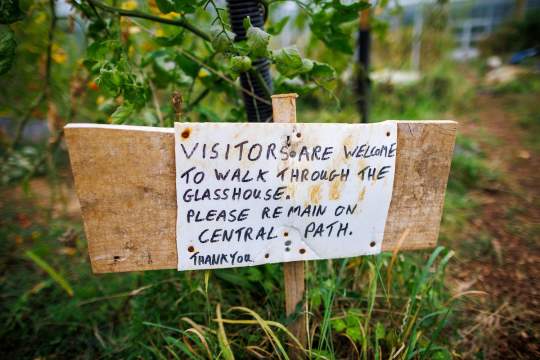 VISITORS ARE WELCOME
TO WALK THROUGH THE
GLASSHOUSE.
PLEASE REMAIN ON
CENTRAL PATH.
THANKYOU